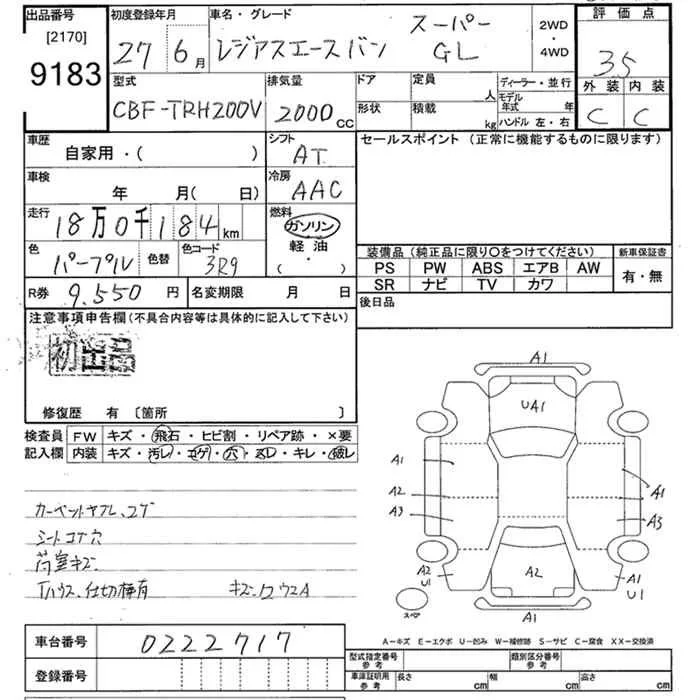 出品番号
[2170]
9183
初度登録年月
27 6月
車名・グレード
レジアスエースバン
スーパー
GL
2WD
・
4WD
評価点
3.5
外装 内装
C C
型式
CBF-TRH200V
排気量
2000cc
ドア
形状
定員
人
積載
kg
ディーラー・並行
モデル
年式 年
ハンドル 左・右
車歴
自家用・( )
シフト
AT
車検
年 月( 日)
冷房
AAC
走行
18万0千184km
燃料
ガソリン
軽油
( ・ )
色
パープル
色替
色コード
3R9
R券 9,550 円
名変期限 月 日
セールスポイント (正常に機能するものに限ります)
装備品(純正品に限り〇をつけてください)
新車保証書
PS PW ABS エアB AW
SR ナビ TV カワ
有・無
後日品
注意事項申告欄(不具合内容等は具体的に記入して下さい)
初出品
修復歴 有〔箇所 〕
検査員
記入欄
FW キズ・飛石・ヒビ割・リペア跡・×要
内装 キズ・汚レ・コゲ・穴・スレ・キレ・破レ
カーペットヤブレ、コゲ
シートコゲ穴
荷室キズ
A1
UA1
A1
A2
A3
A1
A3
A2
U1
A2
A1
U1
A1
スペア
A-キズ E-エクボ U-凹み W-補修跡 S-サビ C-腐食 XX-交換済
車台番号 0222717
登録番号
型式指定番号
参考
類別区分番号
参考
車庫証明用
参考
長さ cm
幅 cm
高さ cm